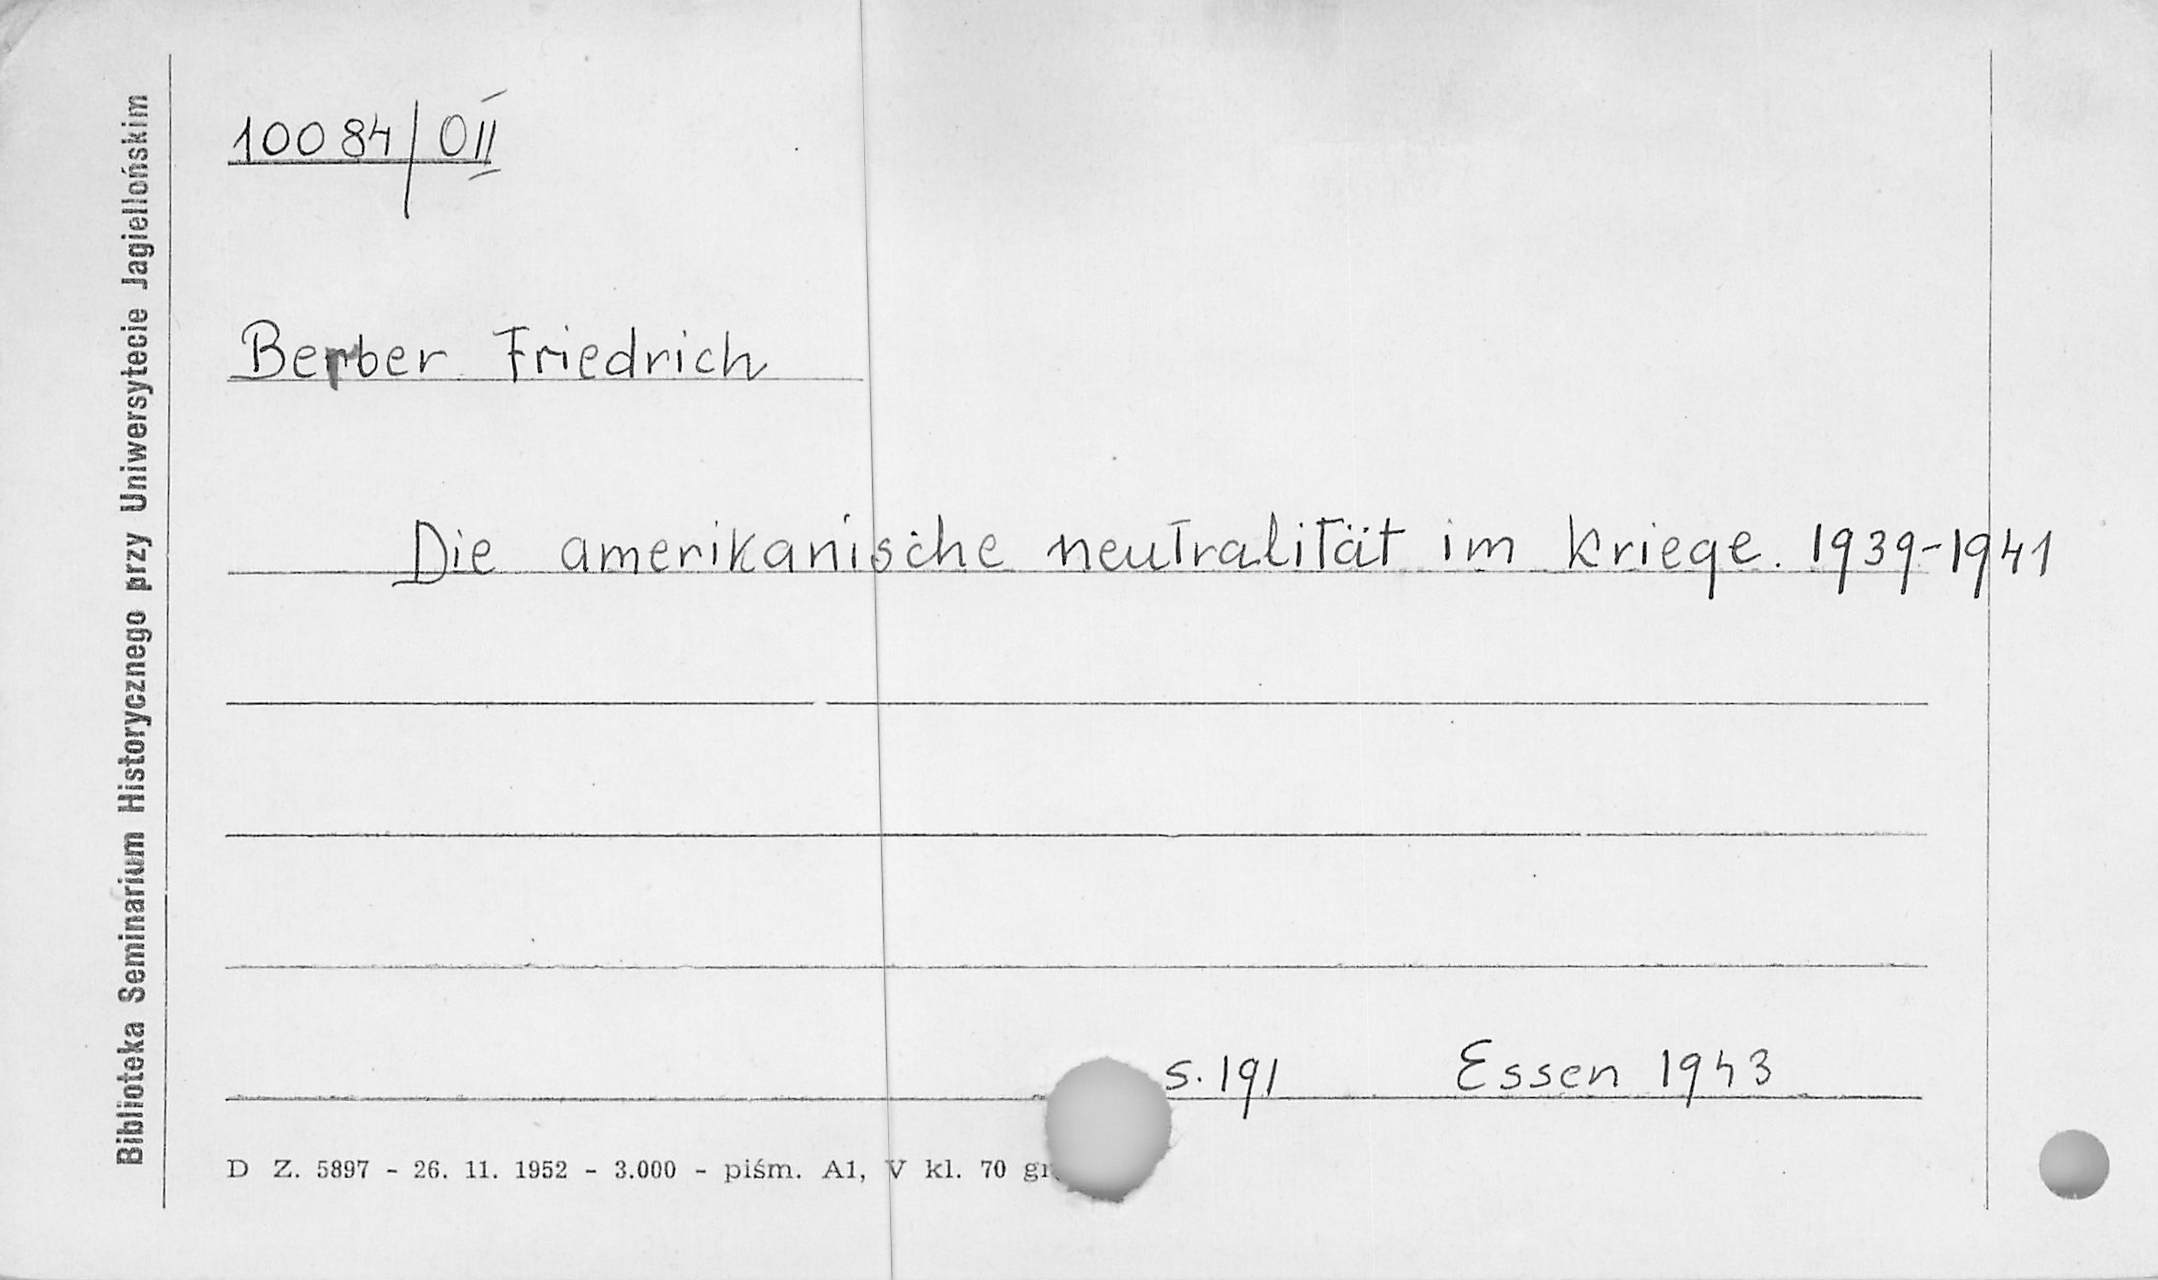 Biblioteka Seminarium Historycznego przy Uniwersytecie Jagiellońskim
10084/OII
Berber Friedrich
Die amerikanische neutralität im kriege. 1939-1941
s. 191 Essen 1943
D Z. 5897 - 26. 11. 1952 - 3.000 - piśm. A1, V kl. 70 gr